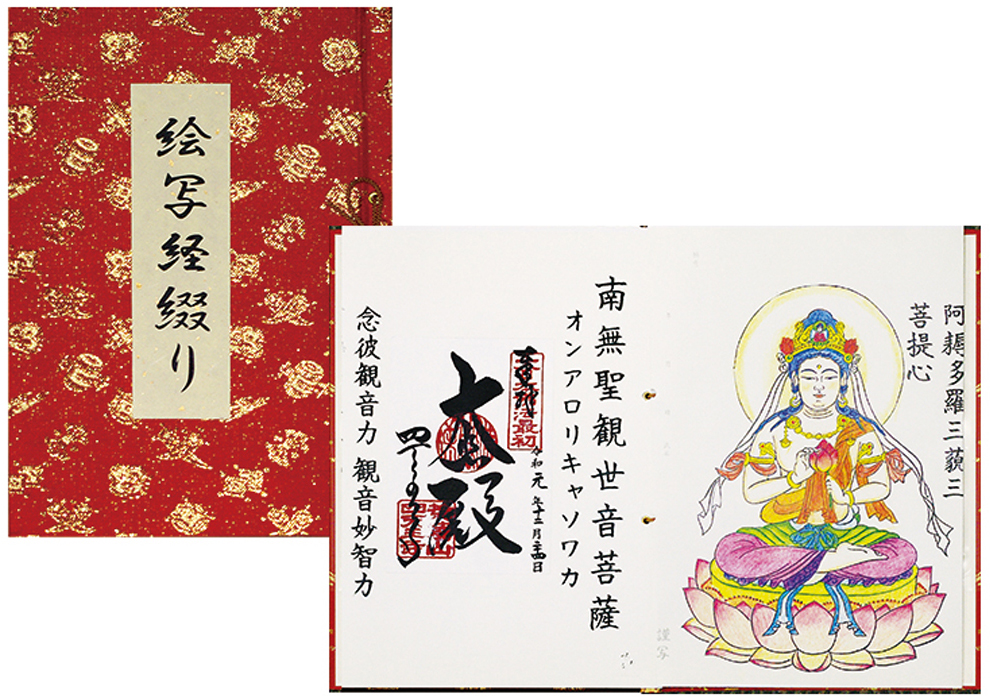 絵写経綴り
阿耨多羅三藐三
菩提心
謹写
南無聖観世音菩薩
オンアロリキャソワカ
令和元年十二月二十四日
大殿
四天王寺
念彼観音力 観音妙智力